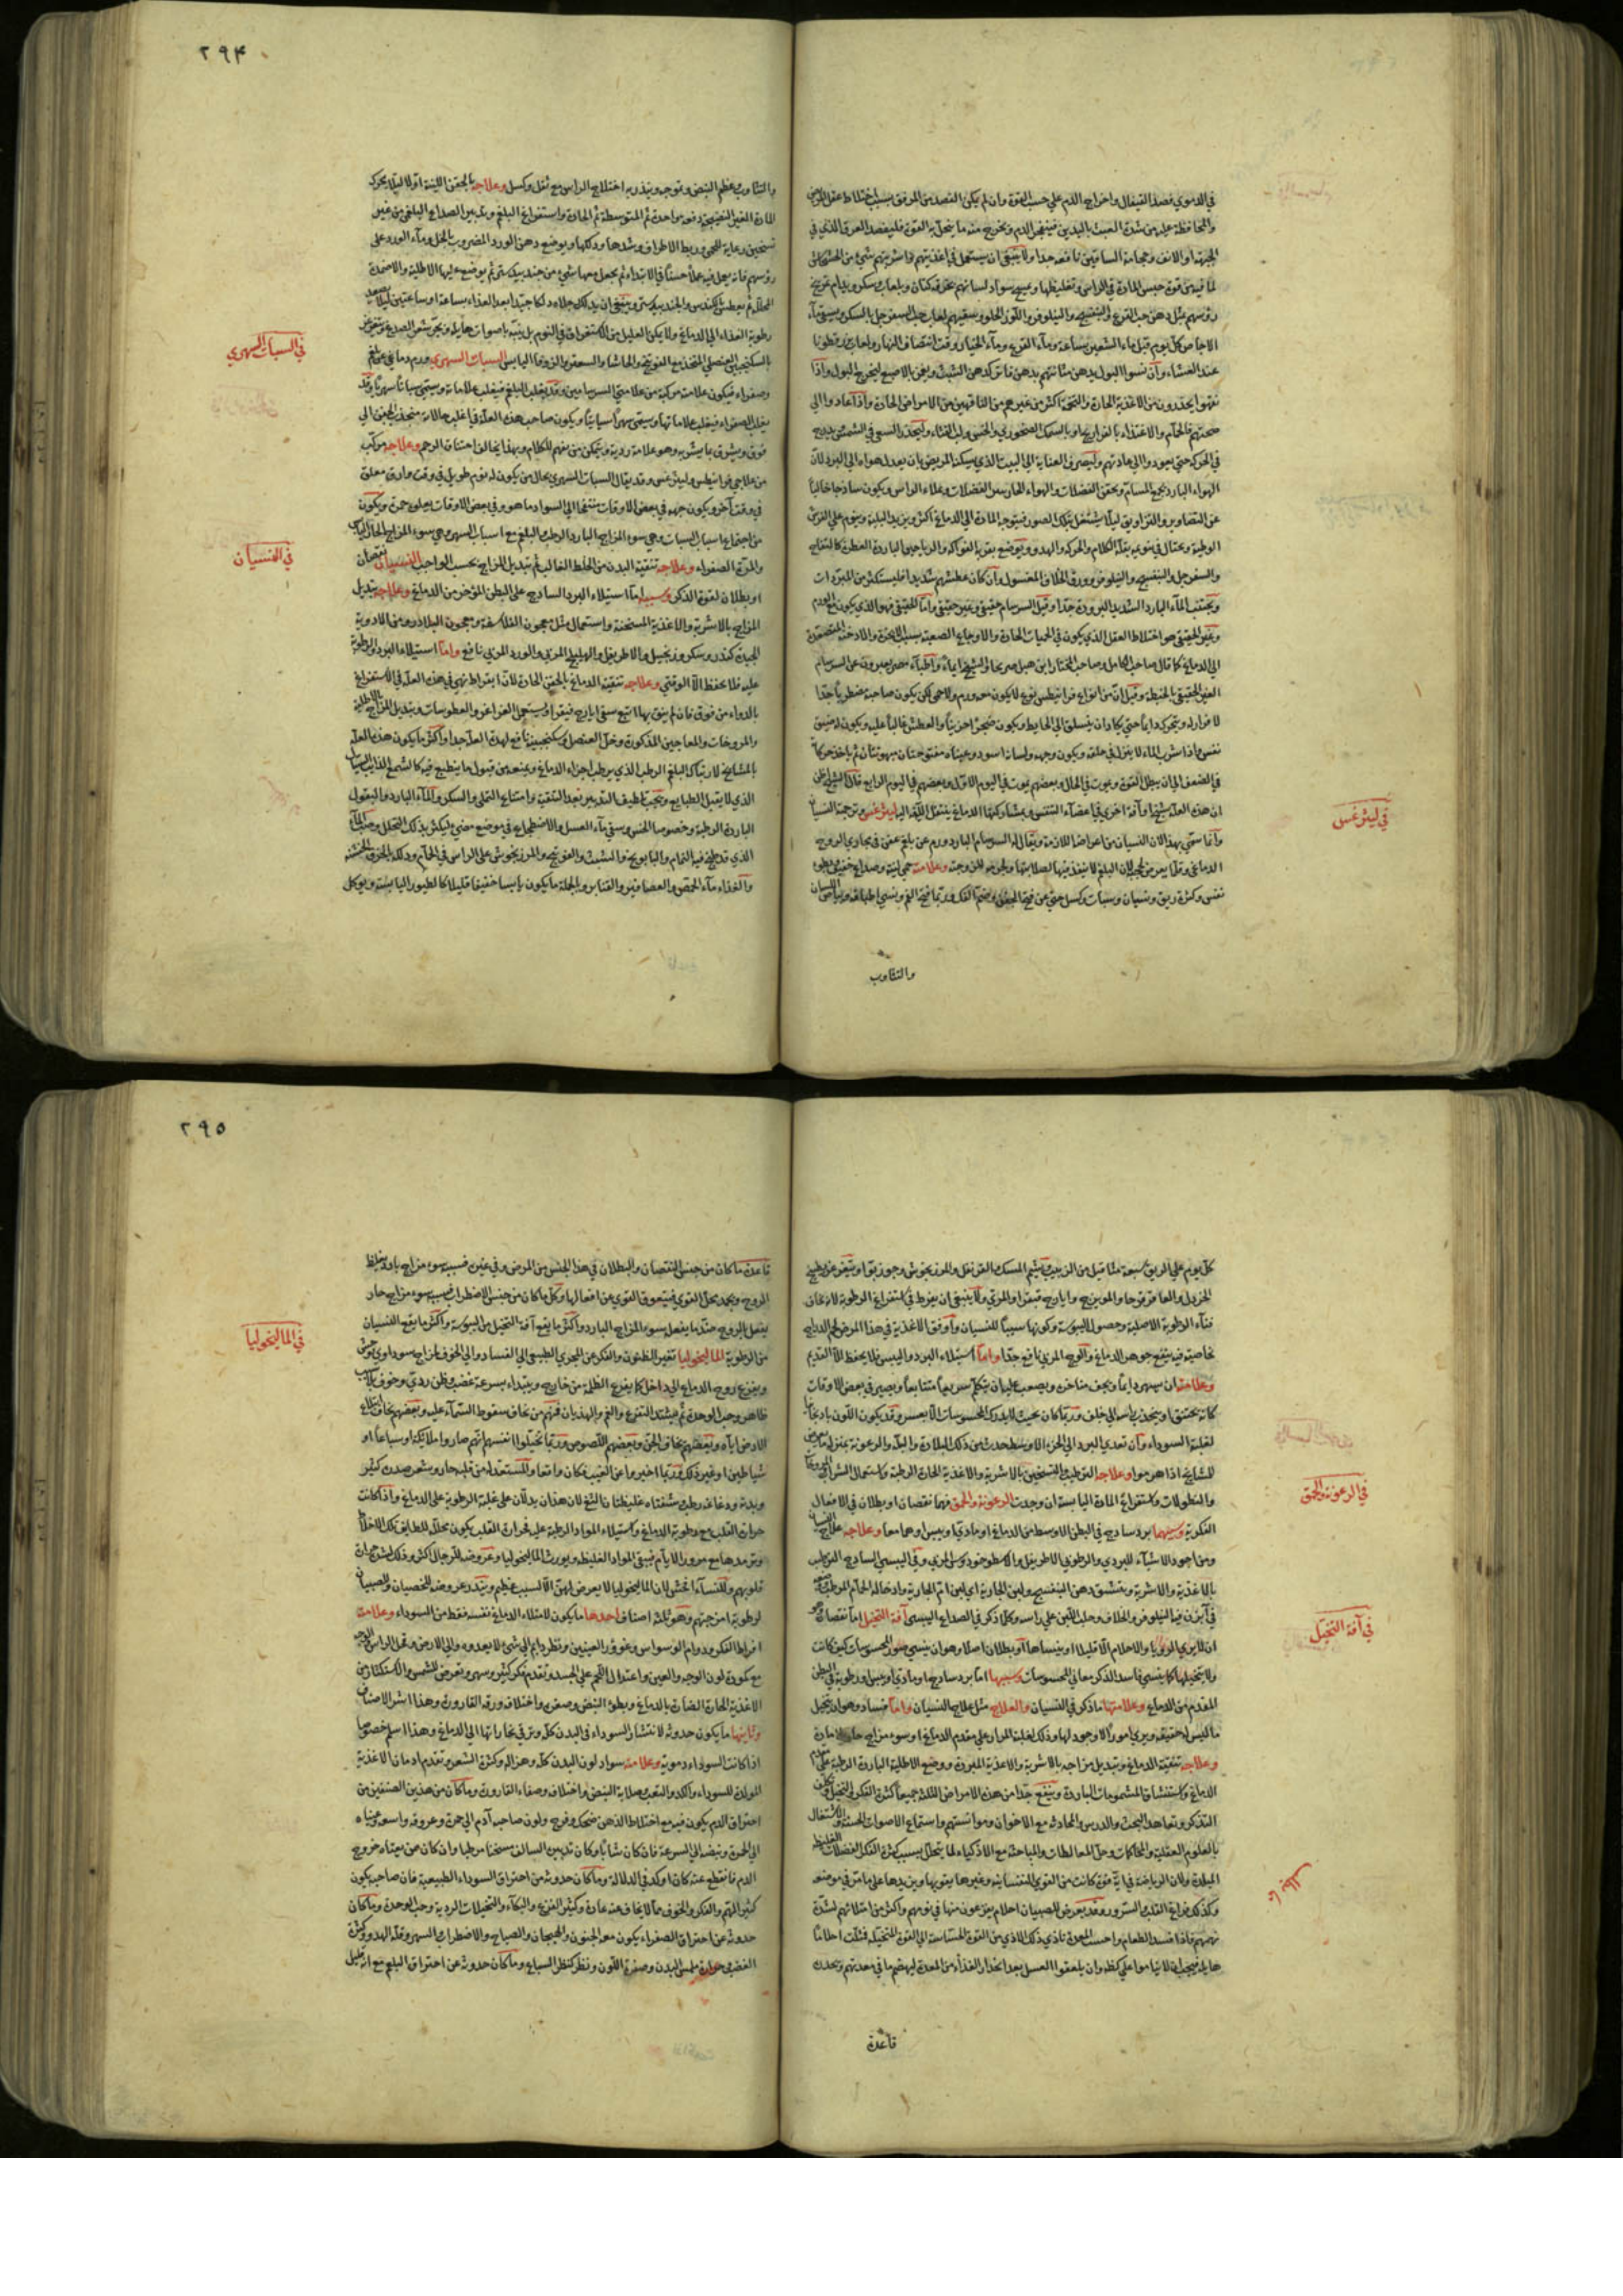 ٢٩٤
في الدموي فصد القيفال واخراج الدم علي حسب القوة وان لم يكن الفصد من المرفق بسبب اختلاط عقل المريض
والمحافظة عليه من شدة العبث باليدين فينفجر الدم ويخرج منه ما ينحل به القوة فليفصد العرق الذي في
الجبهة او الانف وحجامة الساقين نافعة جدا ولا ينبغي ان يستعمل في اغذيتهم واشربتهم شيء من الخشخاش
لما فيه من قوة حبس المادة في الراس وتغليظها ويمسح سواد لسانهم بخرقة كتان وبلعاب وسكر ويدام تمريخ
رؤسهم بمثل دهن حب القرع والبنفسج والنيلوفر واللوز الحلو ويسقيهم لعاب حب السفرجل بالسكر
الاجاص كل يوم قبل ماء الشعير بساعة وماء القرع وماء الخيار وقت انتصاف النهار ولعاب بزر قطونا
عند العشاء وان نسوا البول يدهن مثانتهم بدهن فاتر كدهن الشبث ويغمز بالاصبع ليخرج البول واذا
نقهوا يحذرون من الاغذية الحارة والتخمة اكثر من غيرهم من الناقهين من الامراض الحارة واذا عادوا الي
صحتهم فالحمام والاغتذاء بالفراريج او بالسمك الصخوري والخس ولب القثاء وليحذر السعي في الشمس
في الحركة حتي يعودوا الي عادتهم وليصرف العناية الي البيت الذي يسكنه المريض بان يعدل هواه الي البرد لان
الهواء البارد يجمع المسام ويحقن الفضلات والهواء الحار يسر الفضلات ويملاء الراس ويكون ساذجا خاليا
عن التصاوير والتزاويق ليلا يشتغل بتلك الصور فيتوجه المادة الي الدماغ اكثر ويزيد البلية وينوم علي الفرش
الوطية ويحتال في نومه بقلة الكلام والحركة والهدو ويوضع بقربه الفواكه والرياحين الباردة العطرة كالتفاح
والسفرجل والبنفسج والنيلوفر وورق الخلاف المغسول وان كان عطشهم شديدا فليستكثر من المبردات
ويجتنب الماء البارد الشديد البرودة جدا وقيل السرسام حقيقي وغير حقيقي واما الحقيقي فهو الذي يكون مع الورم
وغير الحقيقي هو اختلاط العقل الذي يكون في الحميات الحارة والاوجاع الصعبة بسبب الابخرة والادخنة المتصعدة
الي الدماغ كما قال صاحب الكامل وصاحب المختار ابن هبل
الغير الحقيقي بالخبطة وقيل ان من انواع فرانيطس نوع لا يكون معه ورم ولا حمي لكن يكون صاحبه مضطربا جدا
لا قرار له ويتحرك دايما حتي يكاد ان يتسلق الي الحايط ويكون ضجرا حزينا والعطش غالبا عليه ويكون له ضيق
نفس واذا شرب الماء لا ينزل في حلقه ويكون وجهه ولسانه اسود وعيناه مفتوحتان مبهوتتان ثم ياخذ حركاته
في الضعف الي ان يبطل القوة ويموت في الحال وبعضهم يموت في اليوم الاول وبعضهم في اليوم الرابع
ان هذه العلة وآفة اخري في اعضاء التنفس وبمشاركتها الدماغ ينتقل الالم اليه ليثرغس وترجمته النسيان
وانما سمي بهذا لان النسيان من اعراضه اللازمة ويقال له السرسام البارد ورم عن بلغم عفن في مجاري الروح
الدماغي وقلما يعرض لحجبه لان البلغم لا ينفذ فيها لصلابتها ولجرمه للزوجته وعلامته حمي لينة وصداع خفيف
نفس وكثرة ريق ونسيان وسبات وكسل حتي عن فتح الجفن وضم الفك وربما فتح الفم ونسي اطباقه وبياض اللسان
والتثاوب
في ليثرغس
والتثاوب وعظم النبض وتموجه وينذر به اختلاج الراس مع ثقل وكسل وعلاجه بالحقن اللينة اولا ليلا يحرك
المادة الغير النضيجة دفعة واحدة ثم المتوسطة ثم الحادة واستفراغ البلغم وتدبير الصداع البلغمي من غير
تسخين رعاية للحمي وربط الاطراف وشدها ودلكها ويوضع دهن الورد المضروب بالخل وماء الورد علي
رؤسهم فانه يعمل فيه عملا حسنا في الابتداء ثم يجعل معها شيء من جندبيدستر ثم يوضع عليها الاطلية والاضمدة
المحللة ثم يعطس بالكندس والجندبيدستر وينبغي ان يدلك رجلاه دلكا جيدا بعد الغذاء بساعة او ساعتين ليلا يصعد
رطوبة الغذاء الي الدماغ ولا يمكن العليل من الاستغراق في النوم بل ينبه باصوات هايلة ويجر شعر الصدغ ويتغرغر
بالسكنجبين العنصلي المتخذ مع الفوتنج والحاشا والسعتر والزوفا اليابس السبات السهري ورم دماغي عن بلغم
وصفراء فيكون علامته مركبة من علامتي السرسامين وقد يغلب البلغم فيغلب علاماته ويسمي سباتا سهريا وقد
يغلب الصفراء فيغلب علاماتها ويسمي سهرا سباتيا ويكون صاحب هذه العلة في اغلب حالاته
فوق ويشرق بما يشربه وهو علامة ردية ويتمكن من تفهم الكلام وبهذا يخالف اختناق الرحم وعلاجه مركب
من علاجي فرانيطس وليثرغس وقد يقال السبات السهري بحال من يكون له نوم طويل في وقت وارق معلق
في وقت آخر ويكون وجهه في بعض الاوقات منتفخا الي السواد ما هو وفي بعض الاوقات يعلوه حمرة ويكون
من اجتماع اسباب السبات وهي سوء المزاج البارد الرطب والبلغم مع اسباب السهر وهي سوء المزاج الحار اليابس
والمرة الصفراء وعلاجه تنقية البدن من الخلط الغالب ثم تبديل المزاج بحسب الواجب النسيان نقصان
او بطلان لقوة الذكر وسببه اما استيلاء البرد الساذج علي البطن المؤخر من الدماغ وعلاجه تبديل
المزاج بالاشربة والاغذية المسخنة واستعمال مثل معجون الفلاسفة ومعجون البلاذر ومن الادوية
الجيدة كندر وسكر وزنجبيل والاطريفل والهليلج المربي والورد المربي نافع واما استيلاء البرد والرطوبة
عليه فلا يحفظ الا الوقتي وعلاجه تنقية الدماغ بالحقن الحادة لان ابقراط نهي في هذه العلة في الاستفراغ
بالدواء من فوق فان لم ينق بها اتبع بسقي ايارج فيقرا ويستعمل الغراغر والعطوسات وتبديل المزاج بالاطلية
والمروخات والمعاجين المذكورة وخل العنصل وسكنجبينه نافع لهذه العلة جدا واكثر ما يكون هذه العلة
بالمشايخ لارتباك البلغم الرطب الذي يرطب اجزاء الدماغ ويمنعه من قبول ما ينطبع فيه كالشمع الذايب السيال
الذي لا يقبل الطبايع ويجب تلطيف التدبير بعد التنقية وامتناع التملي والسكر والماء البارد والبقول
الباردة الرطبة وخصوصا الخس وسقي ماء العسل والاضطجاع في موضع مضيء ليكثر بذلك التحلل وصب الماء
الذي قد طبخ فيه النمام والبابونج والشبث والفوتنج والمرزنجوش علي الراس في الحمام ودلكه بالخرق الخشنة
والغذاء ماء الحمص والعصافير والقنابر وبالجملة ما يكون يابسا خفيفا قليلا كالطيور اليابسة ويوكل
في السبات السهري
في النسيان
٢٩٥
كل يوم علي الريق سبعة مثاقيل من الزبيب ويشم المسك والقرنفل والمرزنجوش وجوزبوا ويتغرغر بطبيخ
الخردل والعاقرقرحا والمويزج وايارج فيقرا والمري ولا ينبغي ان يفرط في استفراغ الرطوبة
فناء الرطوبة الاصلية وحصول اليبوسة وكونها سببا للنسيان واوفق الاغذية في هذا المرض لحم الدراج
بخاصية فيه ينفع جوهر الدماغ والوج المربي نافع جدا واما استيلاء البرد واليبس فلا يحفظ الا القديم
وعلامته ان يسهر دايما ويجف مناخره ويصعب عليه ان يتكلم سريعا متتابعا ويصير في بعض الاوقات
كانه يختنق او ينجذب راسه الي خلف وربما كان بحيث لا يدرك المحسوسات الا بعسر وقد يكون اللون باذنجانيا
لغلبة السوداء وان تعدي البرد الي الجزء الاوسط حدث من ذلك البلادة والبله والرعونة بمنزلة ما يعرض
للمشايخ اذا هرموا وعلاجه الترطيب والتسخين بالاشربة والاغذية الحارة الرطبة واستعمال الشراب
والنطولات واستفراغ المادة اليابسة ان وجدت الرعونة والحمق فهما نقصان او بطلان في الافعال
الفكرية وسببهما برد ساذج في البطن الاوسط من الدماغ او مادي او يبس او هما معا وعلاجه علاج النسيان
ومن اجود الاشياء للبردي والرطوبي الاطريفل والاسطوخودوس المربي وفي اليبسي الساذج الترطيب
بالاغذية والاشربة ويتنشق دهن البنفسج ولبن الجارية اي لبن ام الجارية وادخاله الحمام المرطب
في آبزن فيه النيلوفر والخلاف وحلب اللبن علي راسه وكلما ذكر في الصداع اليبسي آفة التخيل اما نقصان وهو
ان لا يري الرؤيا والاحلام الا قليلا او ينساها او بطلان اصلا وهو ان ينسي صور المحسوسات كيف كانت
ولا يتخيلها كما ينسي فاسد الذكر معاني المحسوسات وسببها اما برد ساذج او مادي او يبس ورطوبة في البطن
المقدم من الدماغ وعلامتها ما ذكر في النسيان والعلاج مثل علاج النسيان واما فساد وهو ان يتخيل
ما ليس له حقيقة ويري امورا لا وجود لها وذلك لغلبة المرار علي مقدم الدماغ او سوء مزاج حار بلا مادة
وعلاجه تنقية الدماغ وتبديل مزاجه بالاشربة والاغذية المبردة ووضع الاطلية الباردة الرطبة علي مقدم
الدماغ واستنشاق المشمومات الباردة وينفع جدا من هذه الامراض الثلثة جميعا كثرة الفكر في التخيل
التذكر وتعاهد البحث والدرس والمحادثة مع الاخوان وموانستهم واستماع الاصوات الحسنة والاشتغال
بالعلوم العقلية والمحاكمات وحل المغالطات والمباحثة مع الاذكياء لما يتحلل بسبب كثرة الفكر الفضلات الغليظة
المبلدة ولان الرياضة في اية قوة كانت من القوي النفسانية وغيرها يقويها ويزيدها علي ما مر في موضعه
وكذلك فراغة القلب والسرور وقد يعرض للصبيان احلام يفزعون منها في نومهم واكثر من امتلائهم لشدة
نهمهم فاذا فسد الطعام واحست المعدة تاذي ذلك الاذي من القوة الحساسة الي القوة المتخيلة فمثلت احلاما
هايلة فيجب ان لا يناموا علي كظة وان يلعقوا العسل بعد انحدار الغذاء من المعدة ليهضم ما في معدتهم ويحدره
قاعدة
في الرعونة والحمق
في آفة التخيل
قاعدة ما كان من جنس النقصان والبطلان في هذا الجنس من المرض وفي غيره فسببه سوء مزاج بارد يغلظ
الروح ويجمد به القوي فيتعوق القوي عن افعالها وكل ما كان من جنس الاضطراب فسببه سوء مزاج حار
يفعل بالروح ضد ما يفعله سوء المزاج البارد واكثر ما يقع آفة التخيل من اليبوسة واكثر ما يقع النسيان
من الرطوبة الماليخوليا تغير الظنون والفكر عن المجري الطبيعي الي الفساد والي الخوف لمزاج سوداوي يوحش
ويفزع روح الدماغ الي داخل كما يفزع الظلمة من خارج ويبتداء بسرعة غضب وظن ردي وخوف بلا سبب
ظاهر وحب الوحدة ثم يشتد التفزع والغم والهذيان فمنهم من يخاف سقوط السماء عليه وبعضهم يخاف ابتلاع
الارض اياه وبعضهم يخاف الجن وبعضهم اللصوص وربما تخيلوا انفسهم انهم صاروا ملائكة او سباعا او
شياطين او غير ذلك وربما اخبروا عن الغيب فكان واقعا والمستعد له من قلبه حار وشعر صدره كثير
وبدنه ودماغه رطب وشفتاه غليظتان الثغ لان هذان يدلان علي غلبة الرطوبة علي الدماغ واذا كانت
حرارة القلب مع رطوبة الدماغ واستيلاء المواد الرطبة عليه فحرارة القلب يكون محللة للطايف تلك الاخلاط
وترمدها مع مرور الايام فيبقي المواد الغليظة ويورث الماليخوليا وعروضه للرجال اكثر وذلك لشدة حرارة
قلوبهم وللنساء افحش لان الماليخوليا لا يعرض لهن الا لسبب عظيم ويندر عروضه للخصيان والصبيان
لرطوبة امزجتهم وهو ثلثة اصناف احدها ما يكون لامتلاء الدماغ نفسه فقط من السوداء وعلامته
افراط الفكر ودوام الوسواس وغور العينين ونظر دايم الي شيء لا يعدوه والي الارض وقحل الراس والوجه
مع كمودة لون الوجه والعين واعتدال اللحم علي الجسد وتقدم فكر كثير وسهر وتعرض للشمس والاستكثار من
الاغذية الحارة الضارة بالدماغ وبطؤ النبض وصغره واختلافه ورقة القارورة وهذا اشر الاصناف
وثانيها ما يكون حدوثه لانتشار السوداء في البدن كله وترقي بخاراتها الي الدماغ وهذا اسلم خصوصا
اذا كانت السوداء دموية وعلامته سواد لون البدن كله وهزاله وكثرة الشعر وتقدم ادمان الاغذية
المولدة للسوداء والكد والتعب وصلابة النبض واختلافه وصفاء القارورة وما كان من هذين الصنفين من
احتراق الدم يكون فيه مع اختلاط الذهن ضحك وفرح ولون صاحبه آدم الي حمرة وعروقه واسعة وعيناه
الي الحمرة ونبضه الي السرعة فان كان شابا وكان تدبيره السالف مسخنا مرطبا وان كان ممن يعتاد خروج
الدم فانقطع عنه كان اوكد في الدلالة وما كان حدوثه من احتراق السوداء الطبيعية فان صاحبه يكون
كثير الهم والفكر والخوف مما لا يخاف عنه عادة وكثير الفزع والبكاء والتخيلات الردية وحب الوحدة وما كان
حدوثه عن احتراق الصفراء يكون معه الجنون والهيجان والصياح والاضطراب والسهر وقلة الهدو وكثرة
الغضب وحرارة ملمس البدن وصفرة اللون ونظره كنظر السباع وما كان حدوثه عن احتراق البلغم مع انه قليل
في الماليخوليا